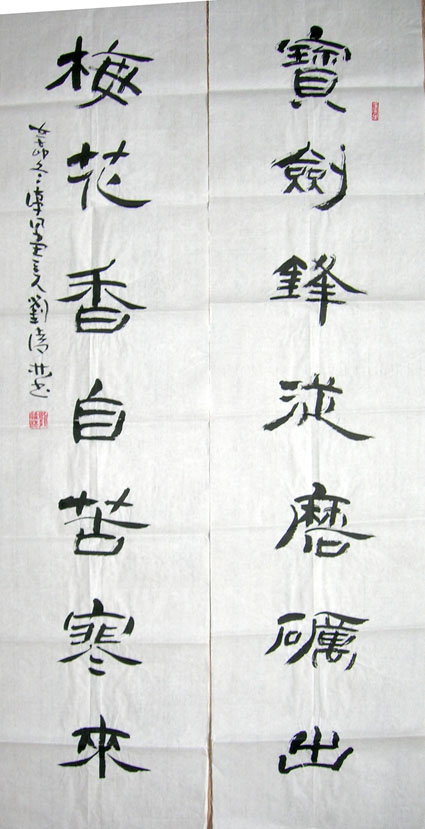 寶劍鋒從磨礪出
梅花香自苦寒來
劉